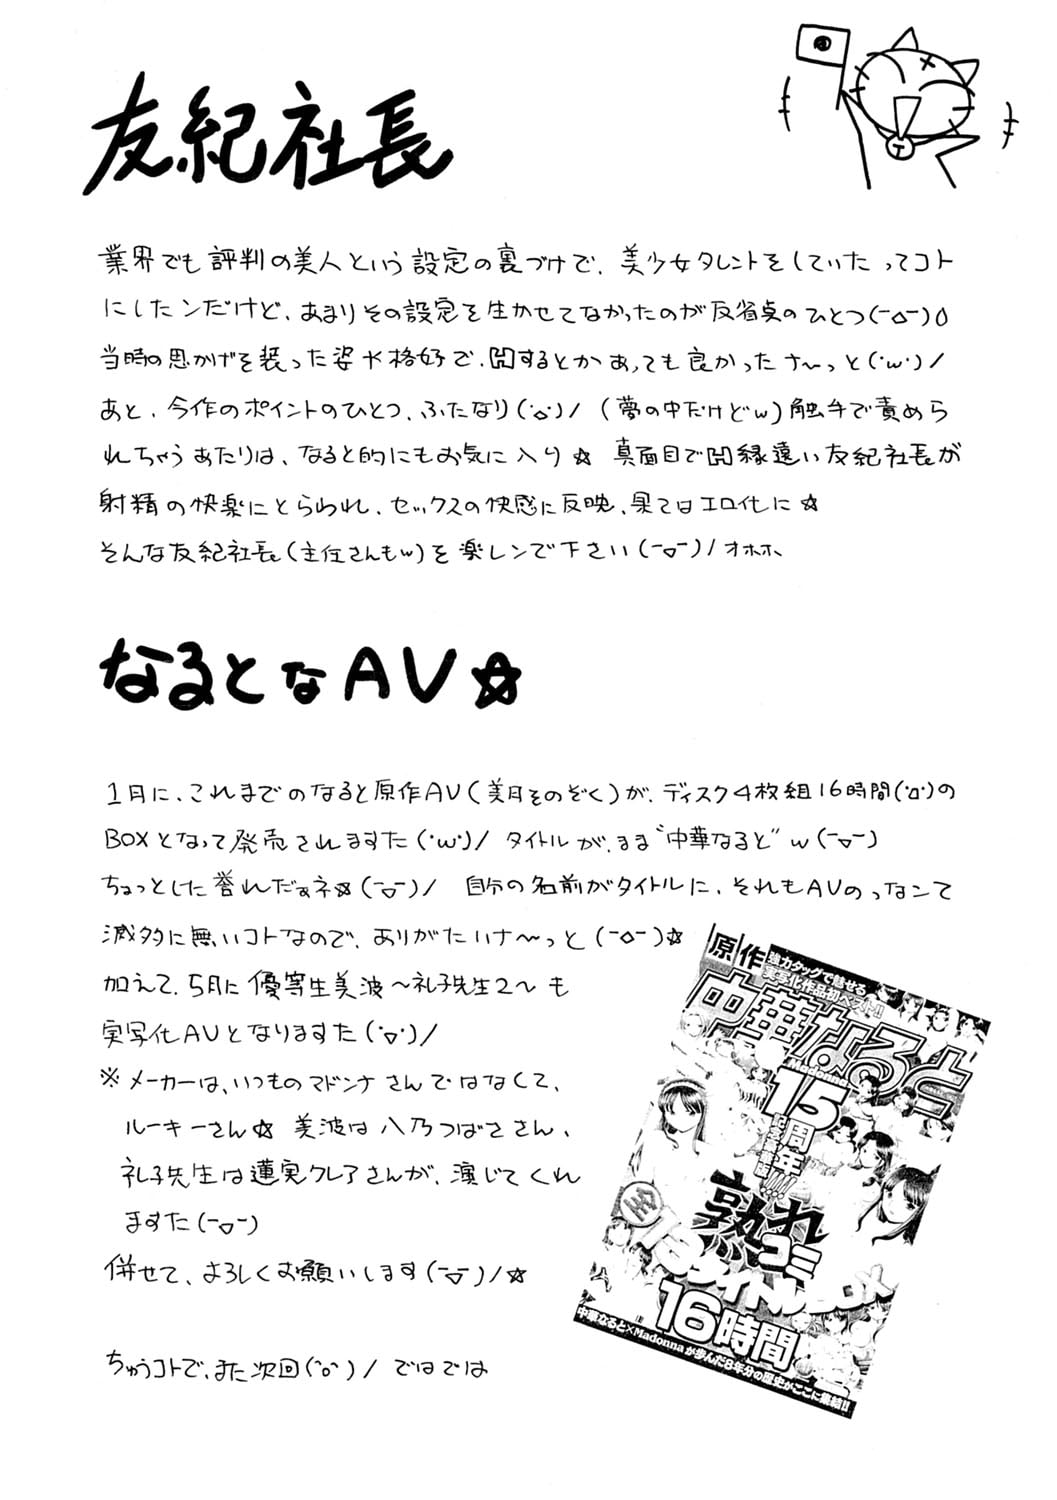 友紀社長
業界でも評判の美人という設定の裏づけで、美少女タレントをしていたってコト
にしたンだけど、あまりその設定を生かせてなかったのが反省点のひとつ(ｰ△ｰ)0
当時の思かげを装った姿や格好で、Hするとかあっても良かったナ～っと(･ω･)/
あと、今作のポイントのひとつ、ふたなり(ﾟ△ﾟ)/ (夢の中だけどw)触手で責めら
れちゃうあたりは、なると的にもお気に入り☆ 真面目でH縁遠い友紀社長が
射精の快楽にとらわれ、セックスの快感に反映、果てはエロ化に☆
そんな友紀社長(主任さんもw)を楽しンで下さい(ｰ▽ｰ)/オホホ、
なるとなAV☆
1月に、これまでのなると原作AV(美月そのぞく)が、ディスク4枚組16時間(ﾟロﾟ)の
BOXとなって発売されますた(･ω･)/ タイトルが、まま"中華なると"w(ｰ▽ｰ)
ちょっとした誉れだぁネ☆(ｰ▽ｰ)/ 自分の名前がタイトルに、それもAVのっなンて
滅多に無いコトなので、ありがたいナ～っと(ｰ◇ｰ)☆
加えて、5月に優等生美波～礼子先生2～も
実写化AVとなりますた(ﾟ▽ﾟ)/
※メーカーは、いつものマドンナさんではなくて、
ルーキーさん☆ 美波は八乃つばささん、
礼子先生は蓮実クレアさんが、演じてくれ
ますた(ｰ▽ｰ)
併せて、よろしくお願いします(ｰ▽ｰ)/☆
ちゅうコトで、また次回(ﾟoﾟ)/ ではでは
原作
強力タッグで魅せる
実写化作品初ベスト!!
中華なると
Madonna
15周年
熟れコミ
全13タイトルBOX
16時間
中華なると×Madonnaが歩んだ8年分の歴史がここに集結!!
T